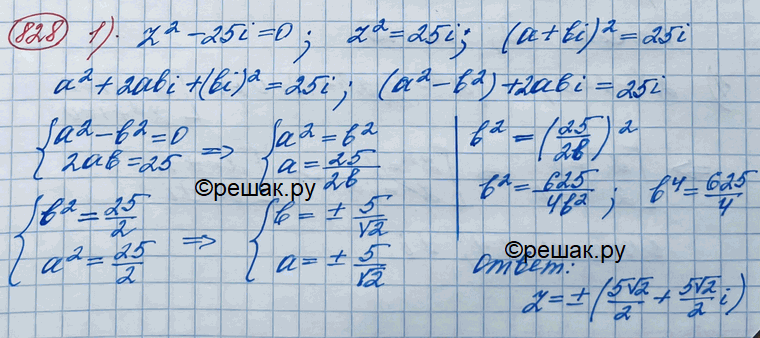 828 1). z² - 25i = 0; z² = 25i; (a+bi)² = 25i
a² + 2abi + (bi)² = 25i; (a² - b²) + 2abi = 25i
{ a² - b² = 0 ; 2ab = 25 => { a² = b² ; a = 25/2b | b² = (25/2b)²
b² = 625/4b² ; b⁴ = 625/4
©решак.ру
{ b² = 25/2 ; a² = 25/2 => { b = ± 5/√2 ; a = ± 5/√2
©решак.ру
ответ:
z = ± (5√2/2 + 5√2/2 i)